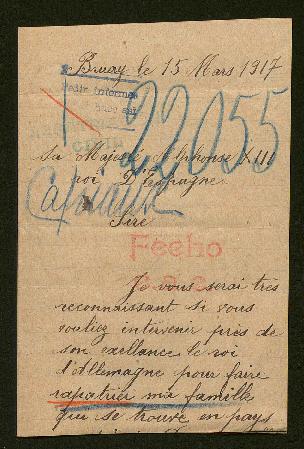 Bruay le 15 Mars 1917
22055
sa Majesté Alphonse XIII
roi D'Espagne
Sire
Fecho
Je vous serai très
reconnaissant si vous
vouliez intervenir près de
son exellance le roi
d'Allemagne pour faire
rapatrier ma famille
qui se trouve en pays